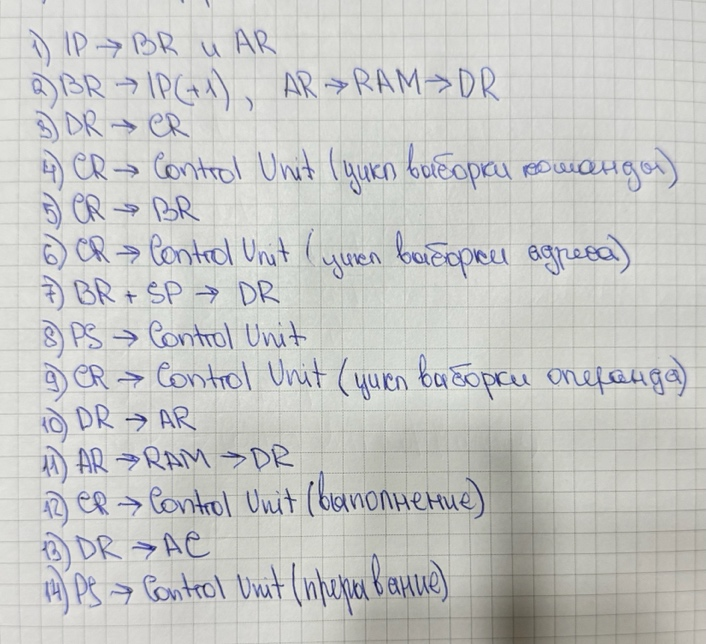 1) IP → BR и AR
2) BR → IP(+1), AR → RAM → DR
3) DR → CR
4) CR → Control Unit (цикл выборки команды)
5) CR → BR
6) CR → Control Unit (цикл выборки адреса)
7) BR + SP → DR
8) PS → Control Unit
9) CR → Control Unit (цикл выборки операнда)
10) DR → AR
11) AR → RAM → DR
12) CR → Control Unit (выполнение)
13) DR → AC
14) PS → Control Unit (прерывание)